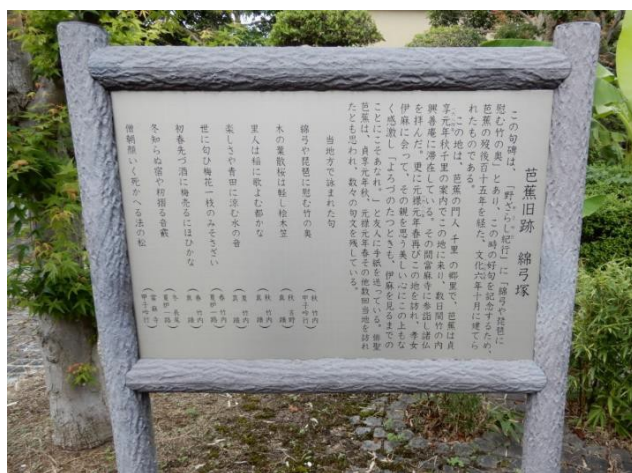 芭蕉旧跡 綿弓塚
この句碑は、「野ざらし紀行」に「綿弓や琵琶に
慰む竹の奥」とあり、この時の好句を記念するため、
芭蕉の歿後百十五年を経た、文化六年十月に建てら
れたものである。
この地は、芭蕉の門人 千里 の郷里で、芭蕉は貞
享元年秋千里の案内でこの地に来り、数日間竹の内
興善庵に滞在している。その間當麻寺に参詣し諸仏
を拝んだ。更に元禄元年春再びこの地を訪れ、孝女
伊麻に会って、その親を思う美しい心にこの上もな
く感激し「よろづのたつときも、伊麻を見るまでの
ことにこそあなれ。」と友人に手紙を送っている。俳聖
芭蕉は、貞享元年秋、元禄元年春その他数回当地を訪れ
たとも思われ、数々の句文を残している。
当地方で詠まれた句
綿弓や琵琶に慰む竹の奥 (秋 竹内 甲子吟行)
木の葉散桜は軽し桧木笠
里人は稲に歌よむ都かな
楽しさや青田に涼む水の音
世に匂ひ梅花一枝のみそさざい
初春先づ酒に梅売るにほひかな
冬知らぬ宿や籾摺る音霰
僧朝顔いく死かへる法の松